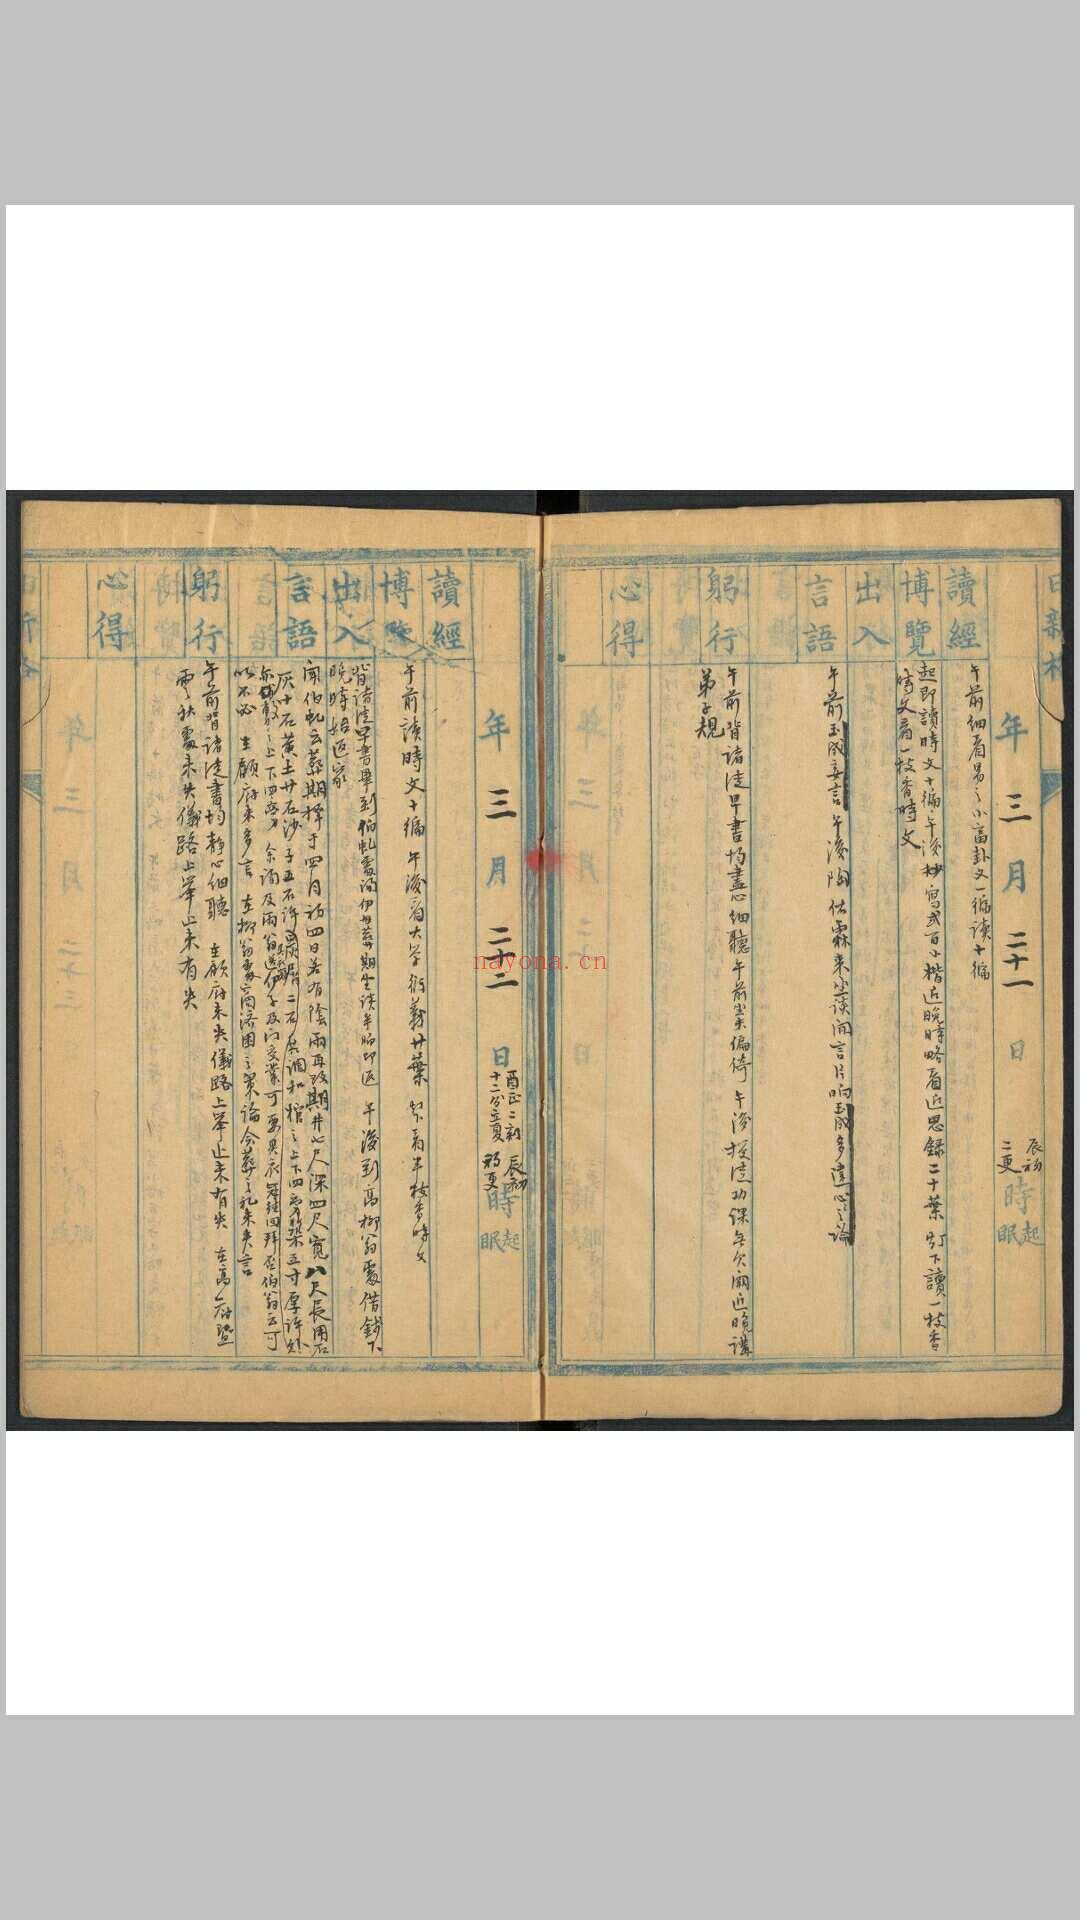 年 三 月 二十一 日 時
辰初 起
二更 眠
讀經
午前細看易之小畜卦文一編读十編
博覽
起即讀時文十編午後抄寫弍百小楷近晚時略看近思錄二十葉 灯下讀一枝香
時文看一枝香時文
出入
言語
午前玉成妄言午後陶佐霖来坐談闲言片响玉成多違心之論
躬行
午前背諸徒早書均盡心細聽午前坐未偏倚 午後授徒功課无欠阙近晚講
弟子規
心得
年 三 月 二十二 日 時
酉正二刻
十二分立夏
辰初 起
初更 眠
讀經
博覽
午前讀時文十編 午後看大学衍義廿葉 灯下看半枝香時文
出入
背諸徒早書畢到伯虬處 伊母葬期坐谈半晌即返 午後到高柳翁處借錢下
晚時始返家
言語
闻伯虬云葬期擇于四月初四日若有陰雨再改期井七尺深四尺寬八尺長用石
灰十石黄土廿石沙子五石许 二石 共調和棺之上下四旁 五寸厚許
上下四旁 余 及雨翁送伊子 可
以不必 在顧府未多言 在柳翁處商济困之策論令葬之礼未失言
躬行
午前背諸徒書均静心細聽 在顧府未失儀路上举止未有失 在高府暨
雪秋處未失儀路上举止未有失
心得
nayona.cn